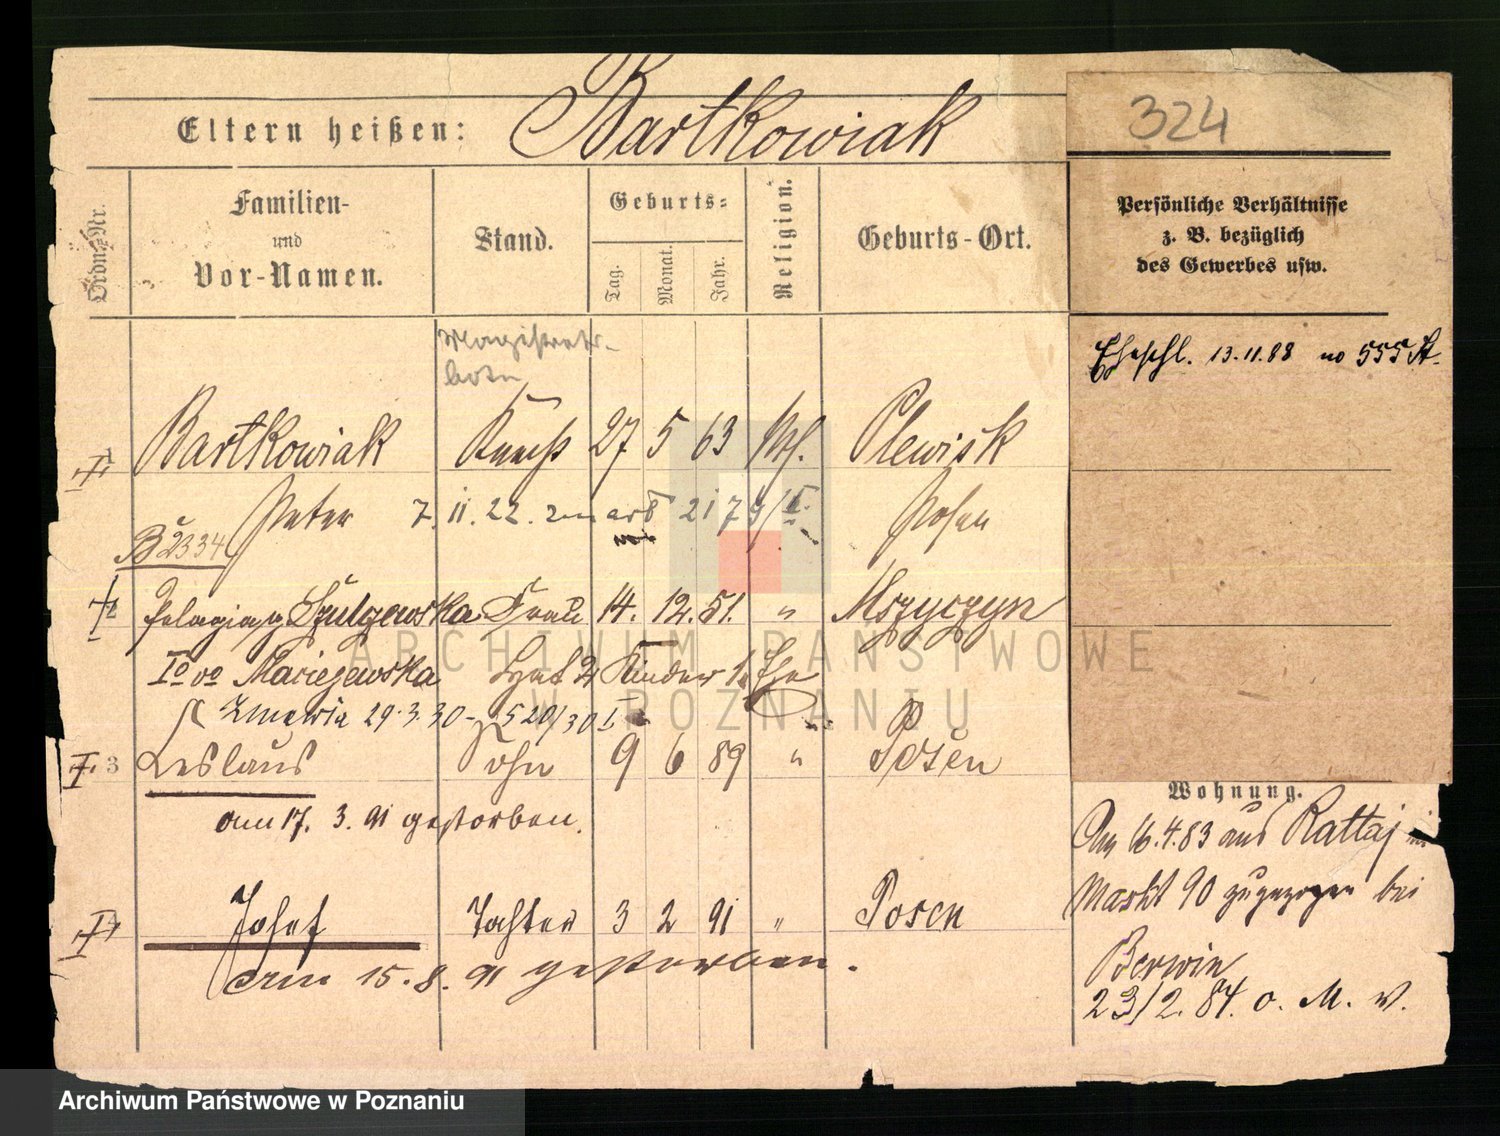 324
Eltern heißen: Bartkowiak
Ordn.-Nr.
Familien-
und
Vor-Namen.
Stand.
Geburts-
Tag.
Monat.
Jahr.
Religion.
Geburts-Ort.
Persönliche Verhältnisse
z. B. bezüglich
des Gewerbes usw.
Magistrats-
bote
Eheschl. 13.11.88 no 555 A.
1 Bartkowiak 27 5 63 kath. Plewisk
Peter 7. 11. 22. 2178/I. Posen
B 2334
2 Pelagia g. Szulczewska Frau 14. 12. 51. " Mszyczyn
Io vo Maciejewska hat 2 Kinder 1. Ehe
29.3.30 520/30 I
3 Leslaus Sohn 9 6 89 " Posen
am 17. 3. 91 gestorben.
4 Josef Tochter 3 2 91 " Posen
am 15. 8. 91 gestorben.
Wohnung.
Am 16.4.83 aus Rattaj
Markt 90 zugezogen bei
Berwin
23/2. 84. o. M. v.
ARCHIWUM PAŃSTWOWE
W POZNANIU
Archiwum Państwowe w Poznaniu